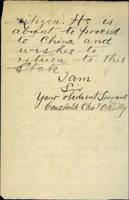 citizen. He is
about to proceed
to China and
wishes to
return to this
State
I am
Sir
Your obedient Servant
Constable Chas O'Reilly